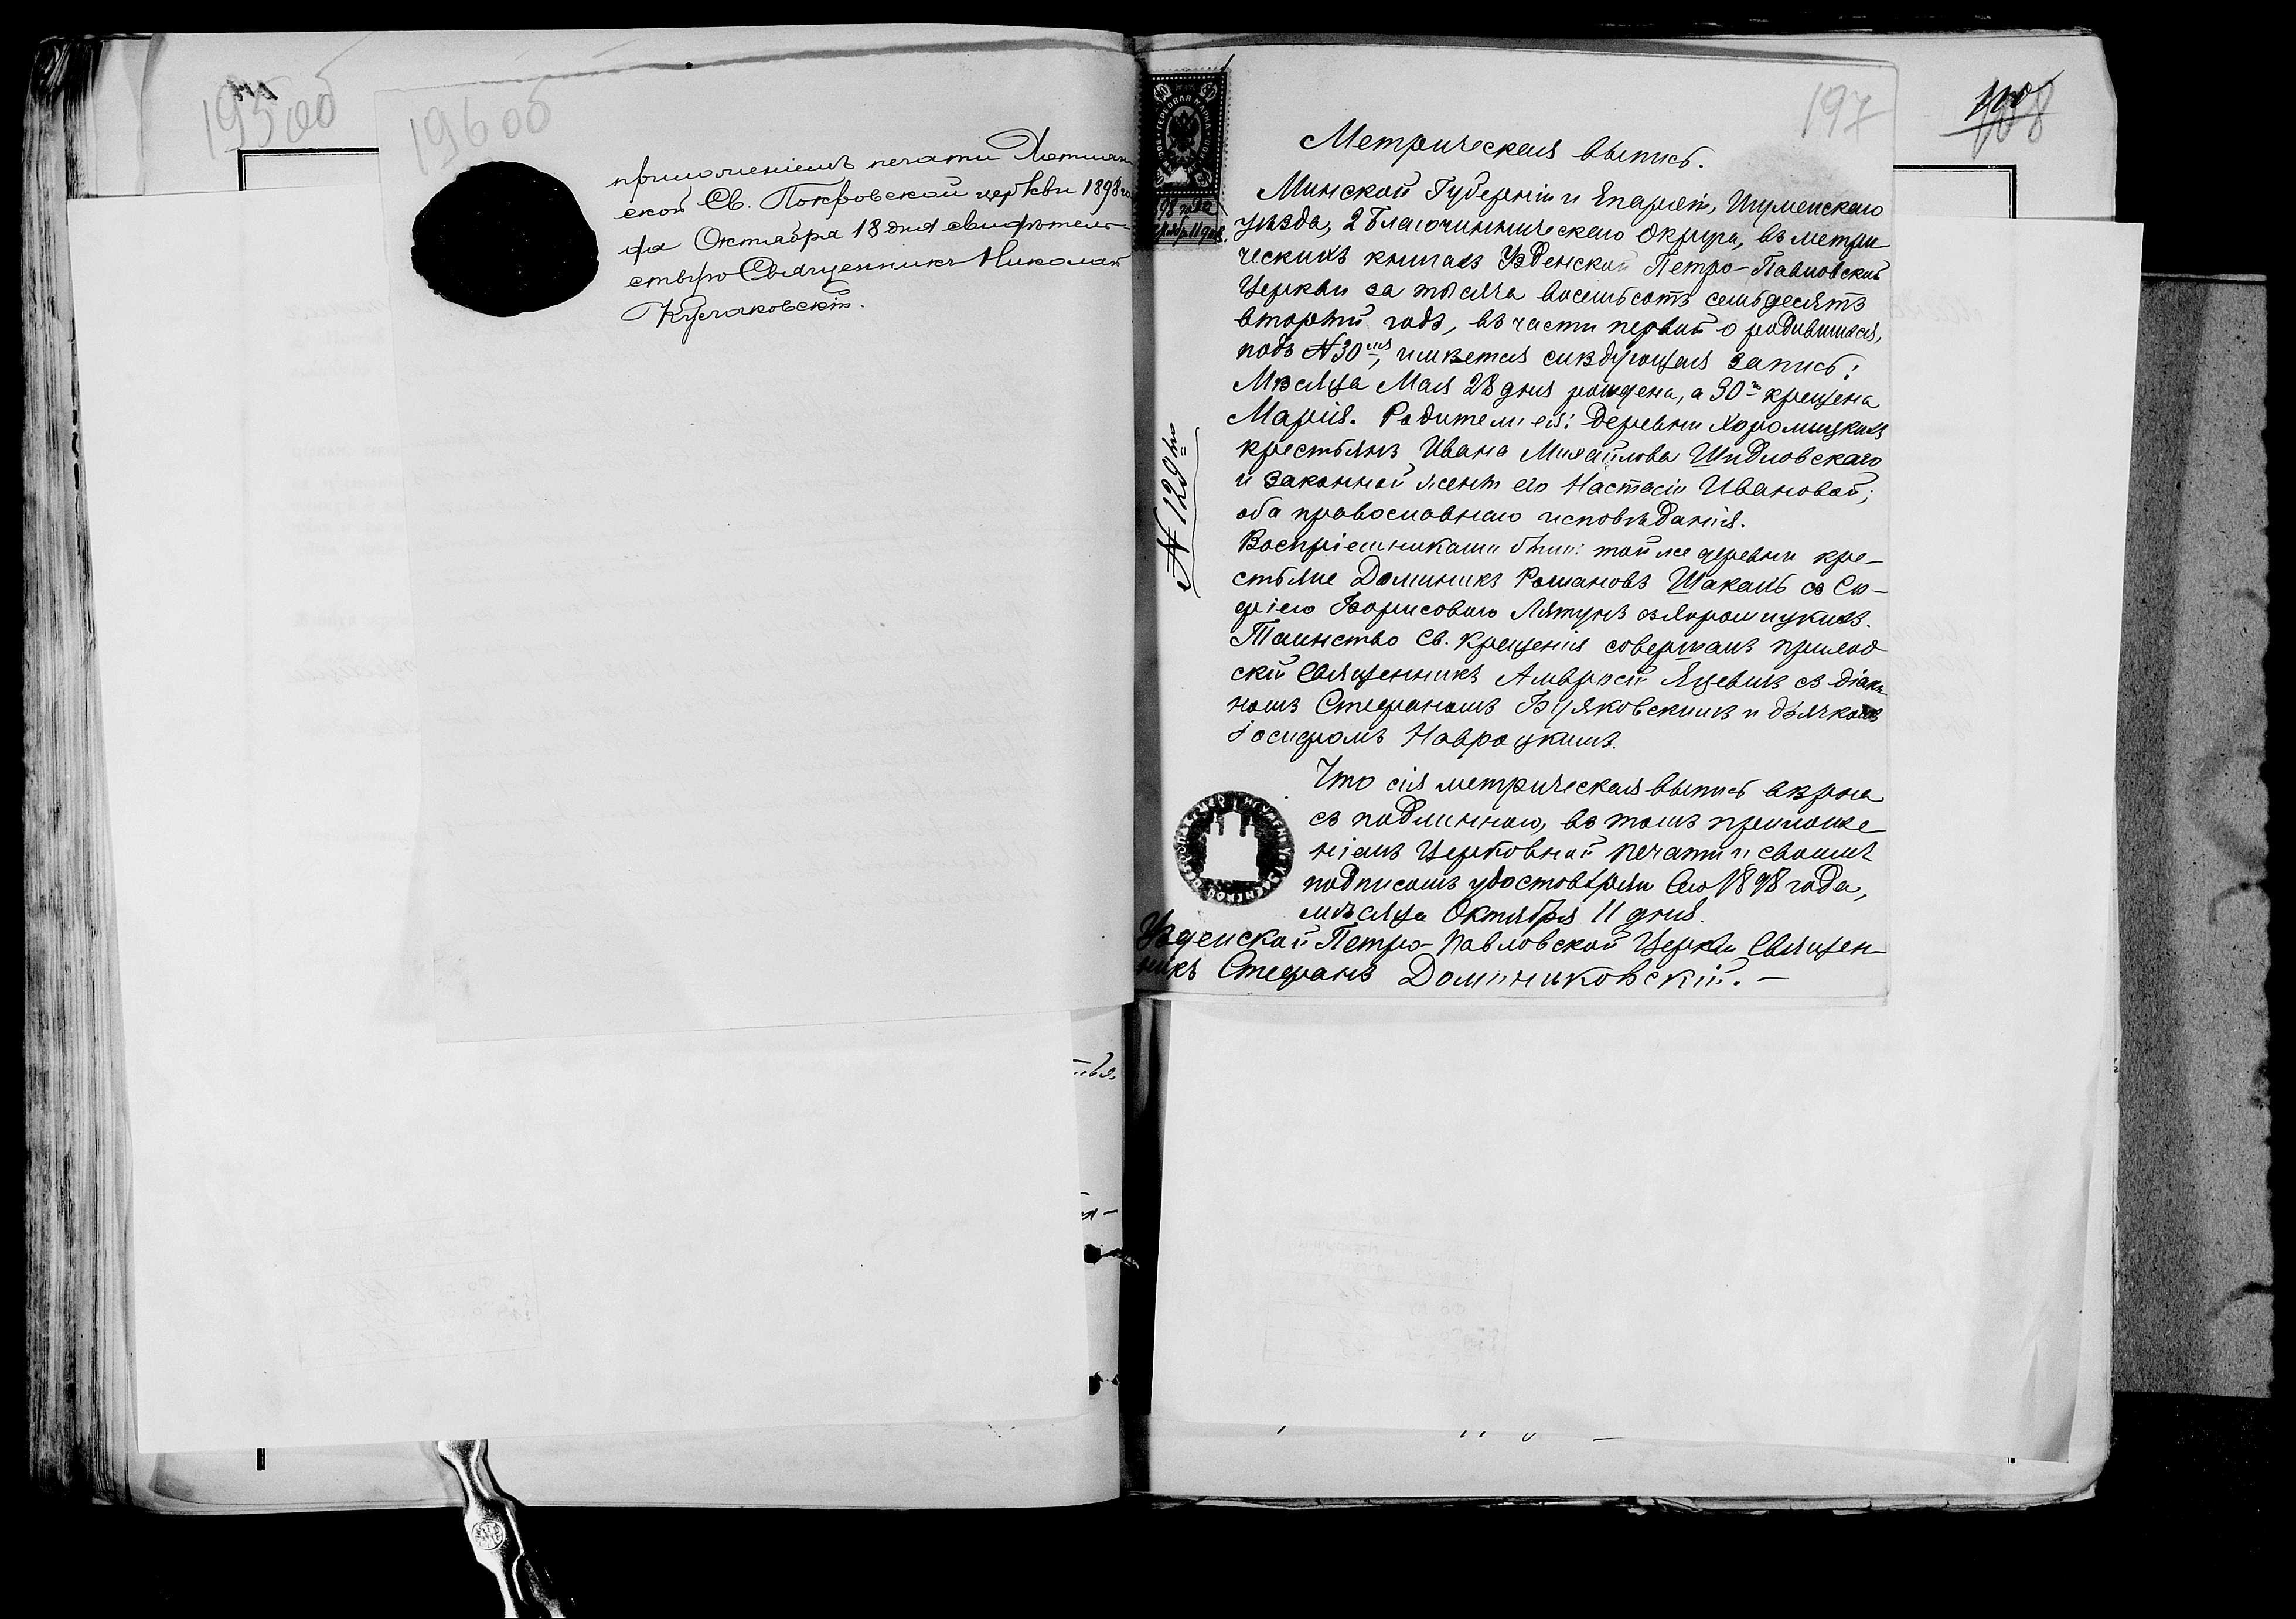 195 об
196 об
приложеніемъ печати Хотлян-
ской Св. Покровской церкви 1898 го
да Октября 18 дня свидѣтель-
ствую Священникъ Николай
197
198
ГЕРБОВАЯ МАРКА
98 года
Октябр. 11 дня.
Метрическая выпись.
Минской Губерніи и Епархіи, Игуменскаго
уѣзда, 2 Благочинническаго Округа, въ метри
ческихъ книгахъ Узденской Петро-Павловской
Церкви за тысяча восемьсотъ семьдесятъ
второй годъ, въ части первой о родившихся,
подъ № 30мъ, имѣется слѣдующая запись:
Мѣсяца Мая 28 дня рождена, а 30го крещена
Марія. Родители ея: Деревни Хоромицкихъ
крестьянъ Ивана Михайлова Шидловскаго
и законной жены его Настасіи Ивановой;
оба православнаго исповѣданія.
Воспріемниками были: той же деревни кре-
стьяне Доминикъ Романовъ Шакаль съ Со-
фіею Борисовою Лятунъ съ Хоромицкихъ.
Таинство Св. Крещенія совершалъ приход
скій Священникъ Амвросій Яцевичъ съ діако-
номъ Стефаномъ и дьячкомъ
Іосифомъ Навроцкимъ.
№ 129го
Что сія метрическая выпись вѣрна
съ подлинною, въ томъ приложе-
ніемъ Церковной печати и своимъ
подписомъ удостовѣряю Сего 1898 года,
мѣсяца Октября 11 дня.
Узденской Петро-Павловской Церкви Священ-
никъ Стефанъ Доминиковскій. —